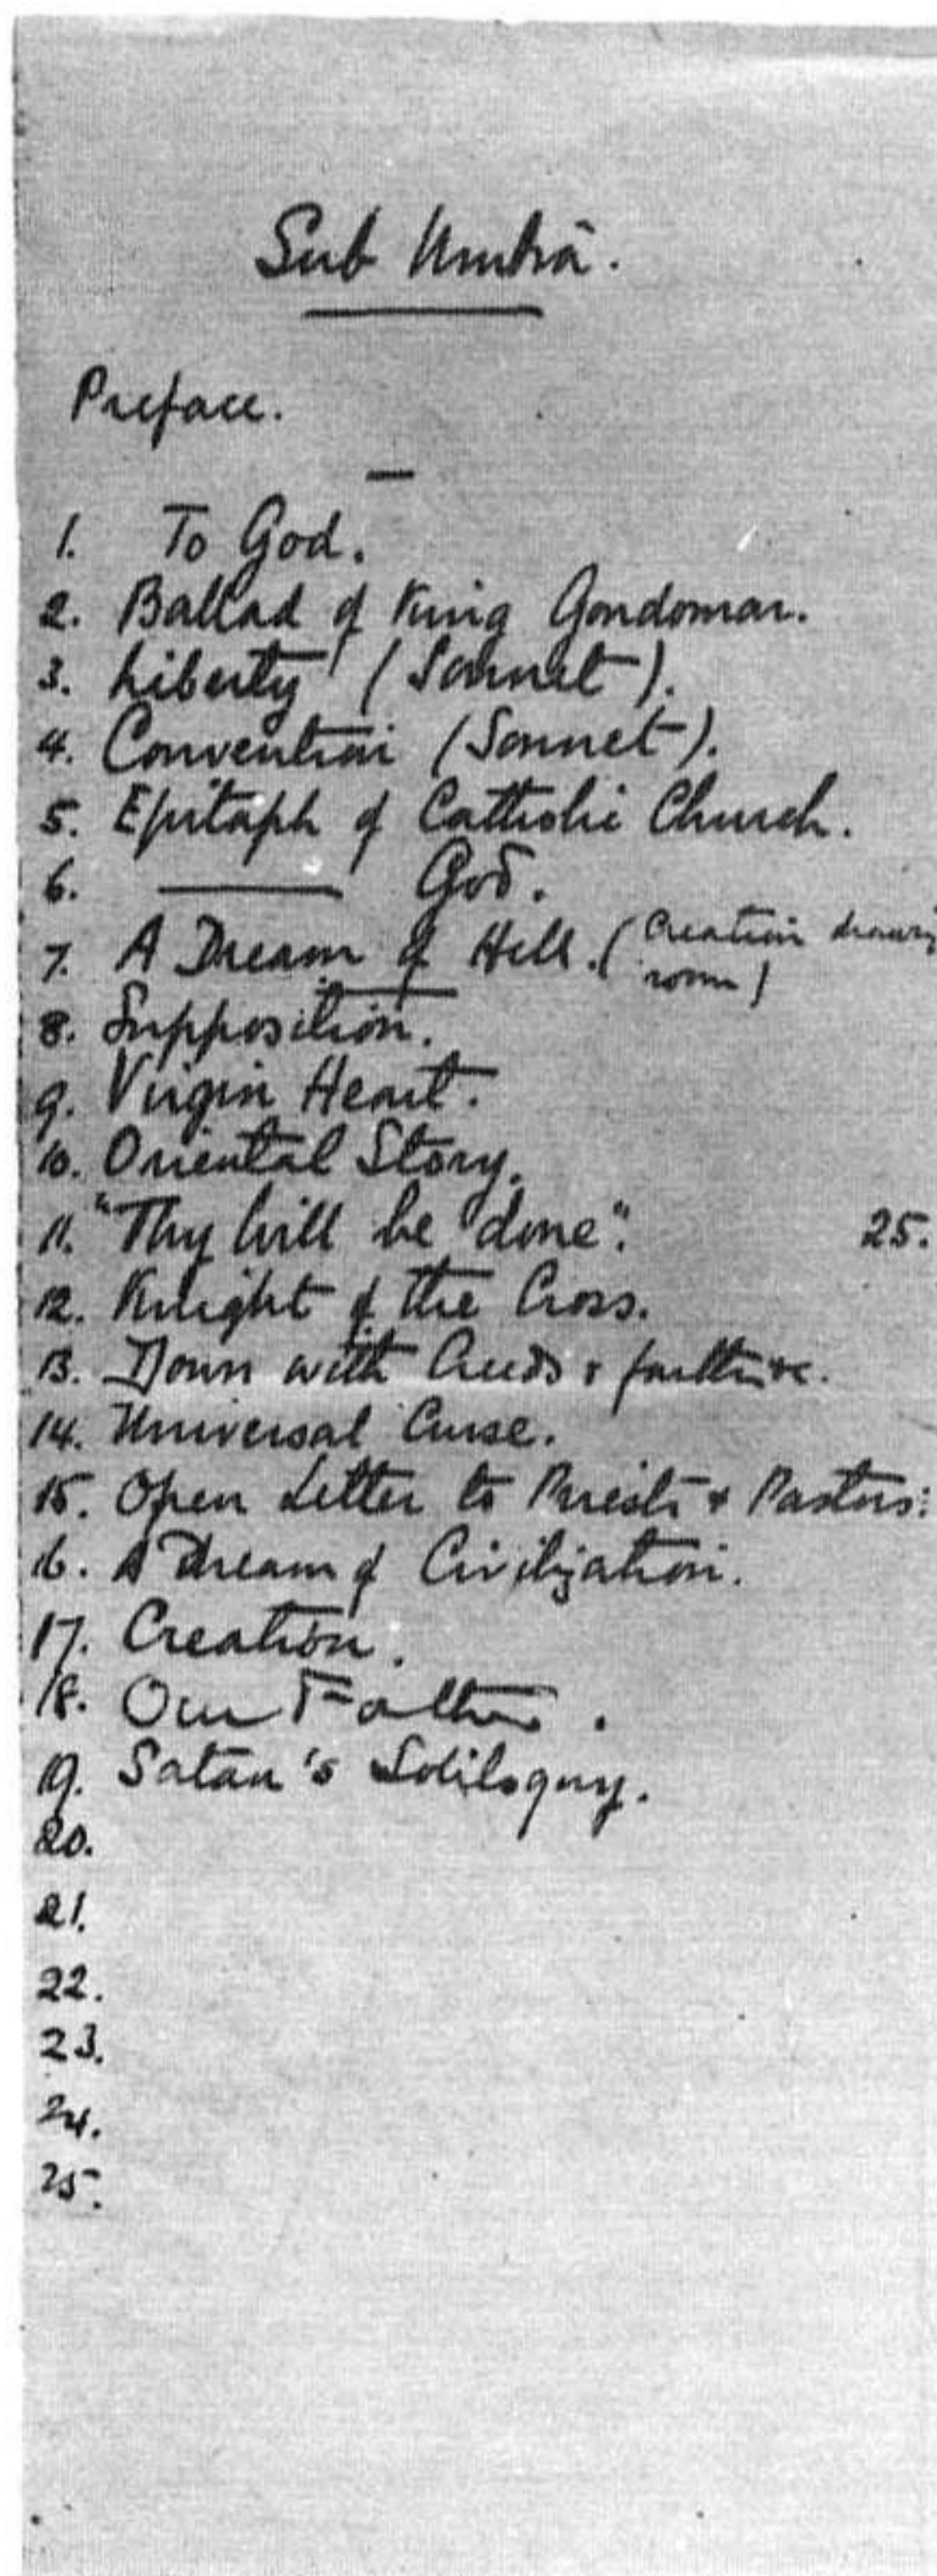 Sub Umbrâ.
Preface.
1. To God.
2. Ballad of King Gondomar.
3. Liberty (Sonnet).
4. Convention (Sonnet).
5. Epitaph of Catholic Church.
6. ——— God.
7. A Dream of Hell. (Creation drawing
room)
8. Supposition.
9. Virgin Heart.
10. Oriental Story.
11. "Thy will be done". 25.
12. Knight of the Cross.
13. Down with Creeds & faiths &c.
14. Universal Curse.
15. Open Letter to Priests & Pastors:
16. A Dream of Civilization.
17. Creation.
18. Our Father.
19. Satan's Soliloquy.
20.
21.
22.
23.
24.
25.